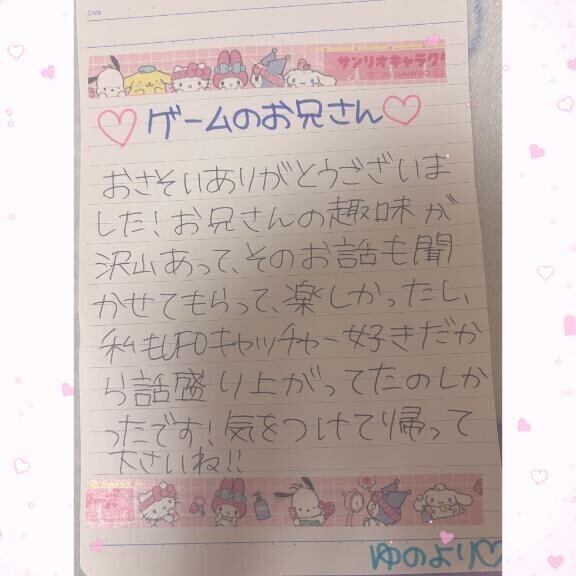 Date
サンリオキャラクタ
ゲームのお兄さん
おさそいありがとうございま
した！お兄さんの趣味が
沢山あって、そのお話も聞
かせてもらって、楽しかったし、
私もUFOキャッチャー好きだか
ら話盛り上がってたのしか
ったです！気をつけて帰って
下さいね!!
ゆのより♡